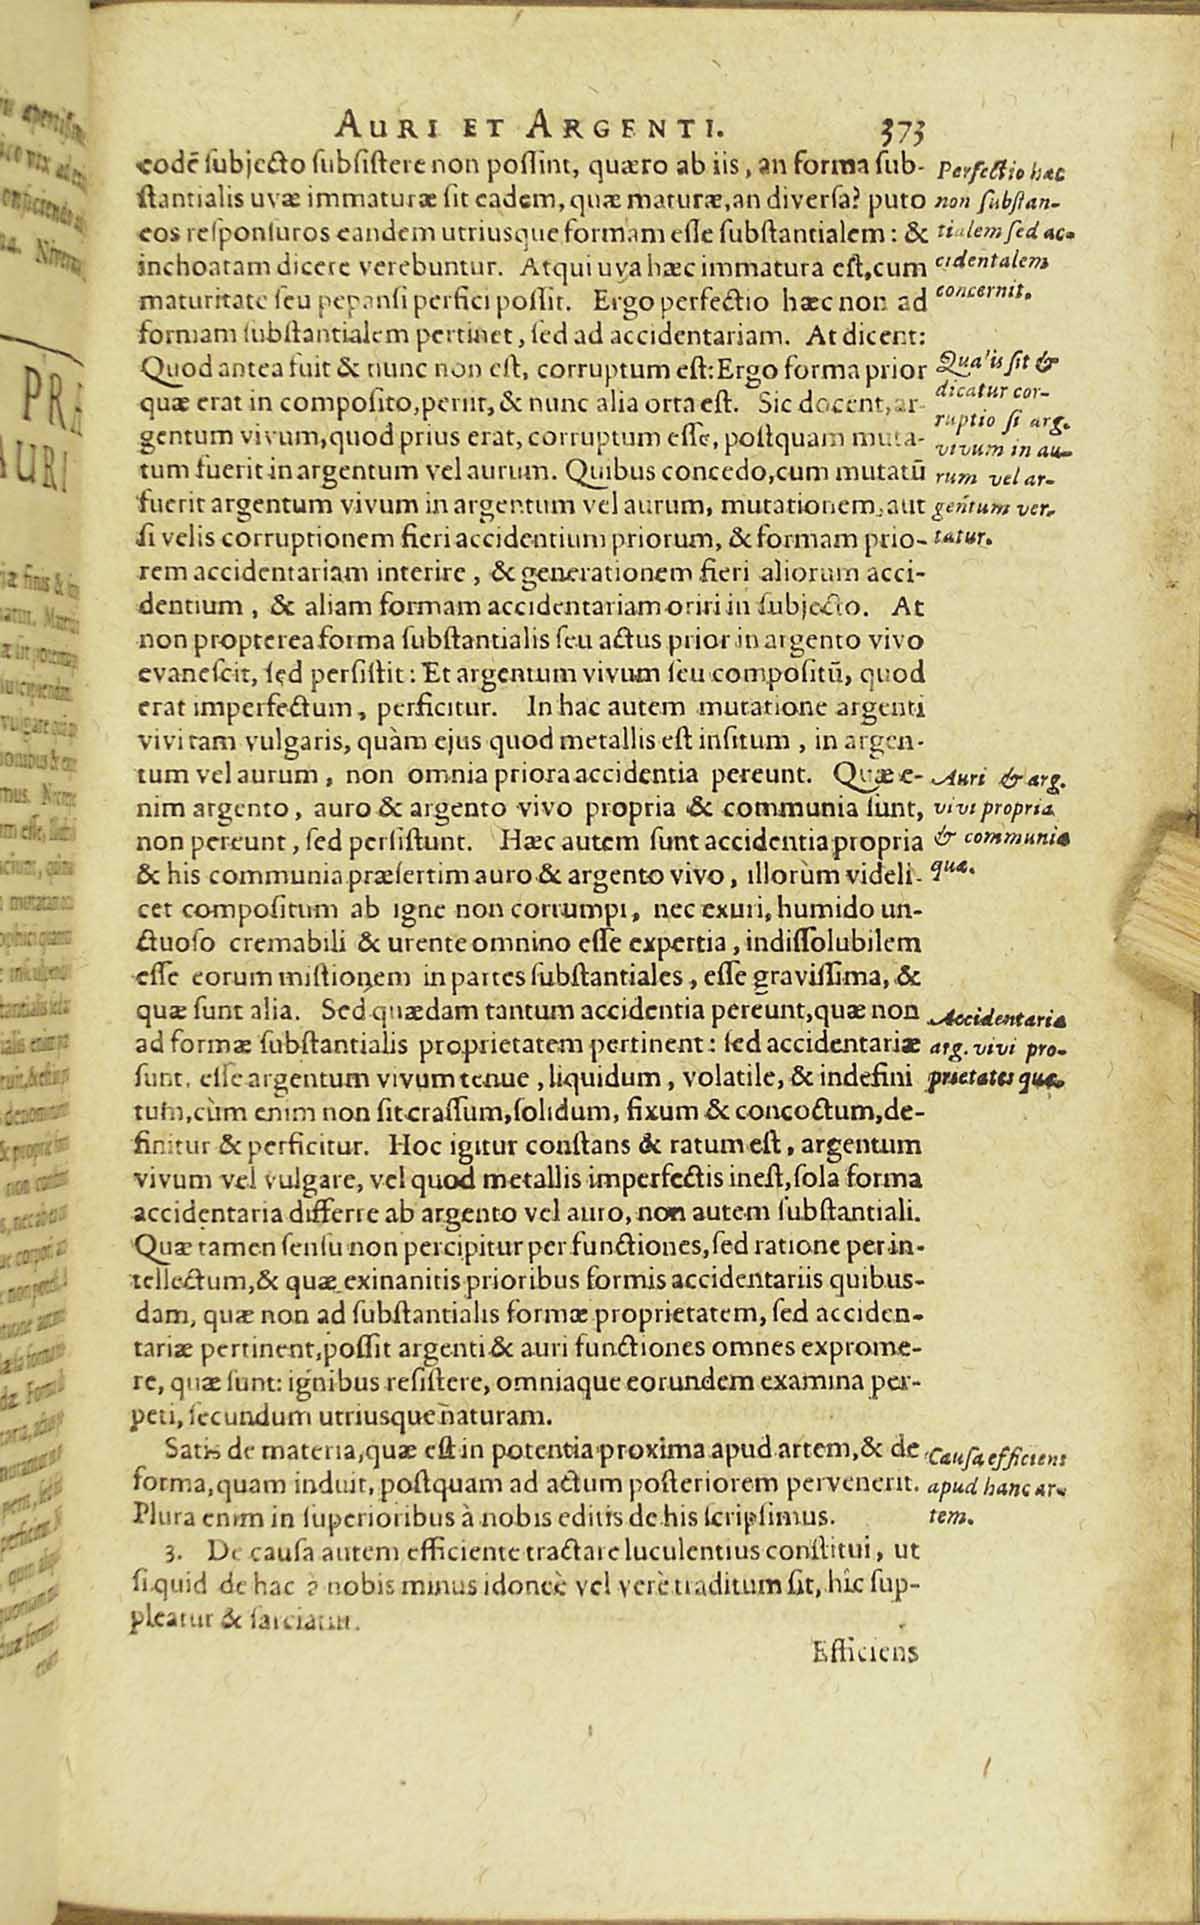 AURI ET ARGENTI. 373
eodē subjecto subsistere non possint, quæro ab iis, an forma sub-
stantialis uvæ immaturæ sit eadem, quæ maturæ, an diversa? puto
eos responsuros eandem utriusque formam esse substantialem: &
inchoatam dicere verebuntur. Atqui uva hæc immatura est, cum
maturitate seu pepansi perfici possit. Ergo perfectio hæc non ad
formam substantialem pertinet, sed ad accidentariam. At dicent:
Quod antea fuit & nunc non est, corruptum est: Ergo forma prior
quæ erat in composito, periit, & nunc alia orta est. Sic docent, ar-
gentum vivum, quod prius erat, corruptum esse, postquam muta-
tum fuerit in argentum vel aurum. Quibus concedo, cum mutatū
fuerit argentum vivum in argentum vel aurum, mutationem, aut
si velis corruptionem fieri accidentium priorum, & formam prio-
rem accidentariam interire, & generationem fieri aliorum acci-
dentium, & aliam formam accidentariam oriri in subjecto. At
non propterea forma substantialis seu actus prior in argento vivo
evanescit, sed persistit: Et argentum vivum seu compositū, quod
erat imperfectum, perficitur. In hac autem mutatione argenti
vivi tam vulgaris, quàm ejus quod metallis est insitum, in argen-
tum vel aurum, non omnia priora accidentia pereunt. Quæ e-
nim argento, auro & argento vivo propria & communia sunt,
non pereunt, sed persistunt. Hæc autem sunt accidentia propria
& his communia præsertim auro & argento vivo, illorùm videli-
cet compositum ab igne non corrumpi, nec exuri, humido un-
ctuoso cremabili & urente omnino esse expertia, indissolubilem
esse eorum mistionem in partes substantiales, esse gravissima, &
quæ sunt alia. Sed quædam tantum accidentia pereunt, quæ non
ad formæ substantialis proprietatem pertinent: sed accidentariæ
sunt, esse argentum vivum tenue, liquidum, volatile, & indefini
tum, cùm enim non sit crassum, solidum, fixum & concoctum, de-
finitur & perficitur. Hoc igitur constans & ratum est, argentum
vivum vel vulgare, vel quod metallis imperfectis inest, sola forma
accidentaria differre ab argento vel auro, non autem substantiali.
Quæ tamen sensu non percipitur per functiones, sed ratione per in-
tellectum, & quæ exinanitis prioribus formis accidentariis quibus-
dam, quæ non ad substantialis formæ proprietatem, sed acciden-
tariæ pertinent, possit argenti & auri functiones omnes exprome-
re, quæ sunt: ignibus resistere, omniaque eorundem examina per-
peti, secundum utriusque naturam.
Satis de materia, quæ est in potentia proxima apud artem, & de
forma, quam induit, postquam ad actum posteriorem pervenerit.
Plura enim in superioribus à nobis editis de his scripsimus.
3. De causa autem efficiente tractare luculentius constitui, ut
si quid de hac à nobis minus idoneè vel verè traditum sit, hîc sup-
pleatur & sarciatur.
Efficiens
Perfectio hæc
non substan-
tialem sed ac-
cidentalem
concernit.
Qualis sit &
dicatur cor-
ruptio si arg.
vivum in au-
rum vel ar-
gentum ver-
tatur.
Auri & arg.
vivi propria
& communia
quæ.
Accidentaria
arg. vivi pro-
prietates quæ.
Causa efficiens
apud hanc ar-
tem.
PRÆ
AURI